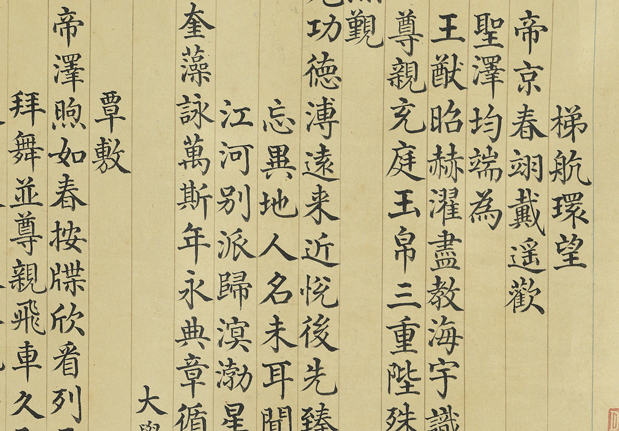 梯航環望
帝京春翊戴遥歡
聖澤均端為
王猷昭赫濯盡教海宇識
尊親充庭玉帛三重陛殊
覲
功德溥遠来近悅後先臻
忘異地人名未耳聞
江河别派歸溟渤星
奎藻詠萬斯年永典章循
大學
覃敷
帝澤煦如春按牒欣看列
拜舞並尊親飛車久